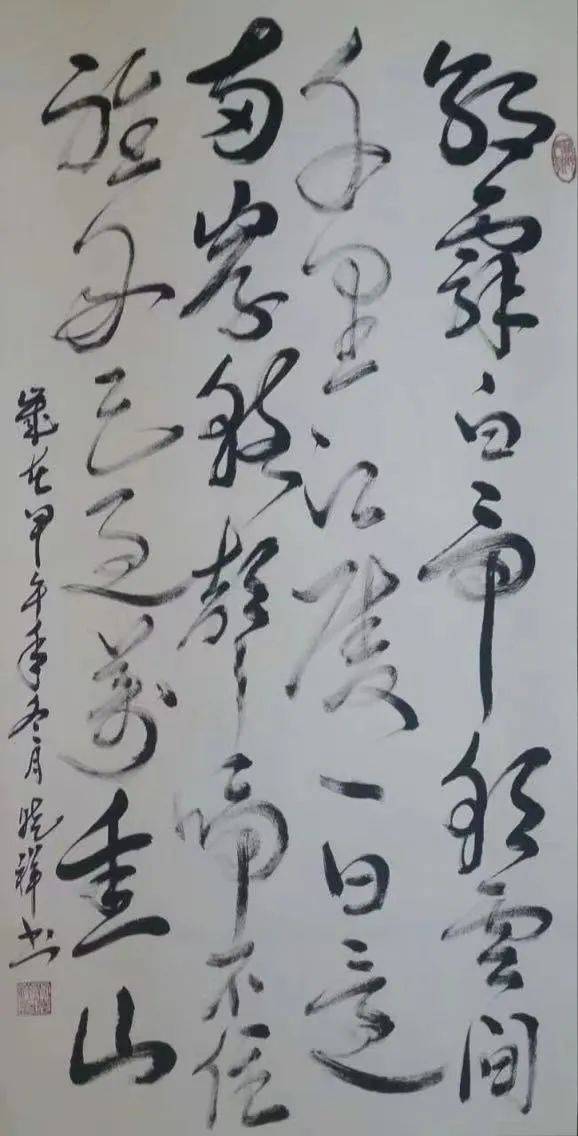 朝辭白帝彩雲間
千里江陵一日還
兩岸猿聲啼不住
輕舟已過萬重山
歲在甲午年冬月曉祥書